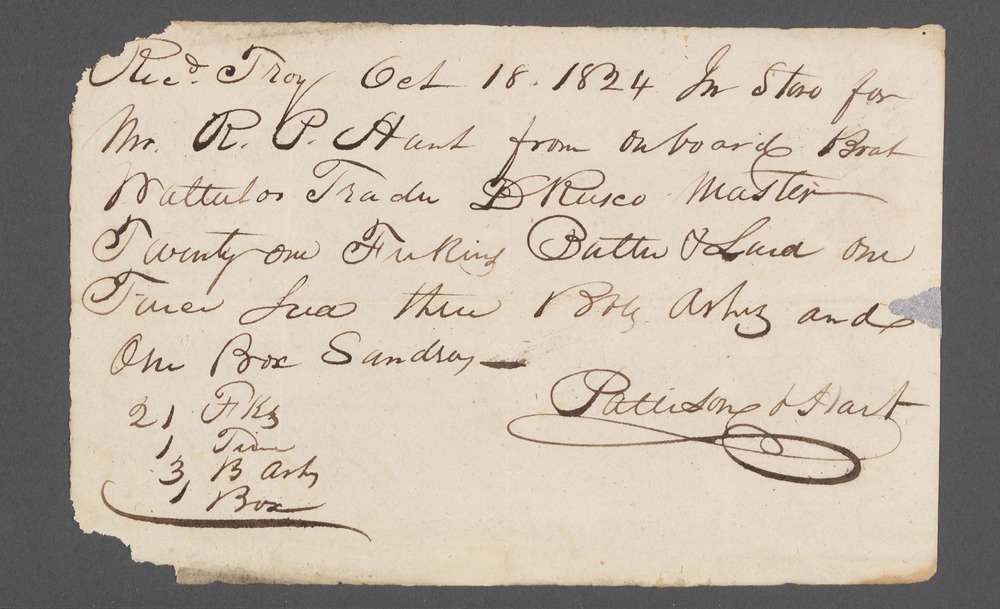 Recd. Troy Oct 18. 1824 In Store for
Mr. R. P. Hart from onboard Boat
Trader D Rusco Master
Twenty one Firkins Butter & Lard one
Tierce Seed three Bbls Ashes and
One Box Sundrys
21 Fks
1 Tierce
3, B Ashs
1 Box
Pattison & Hart